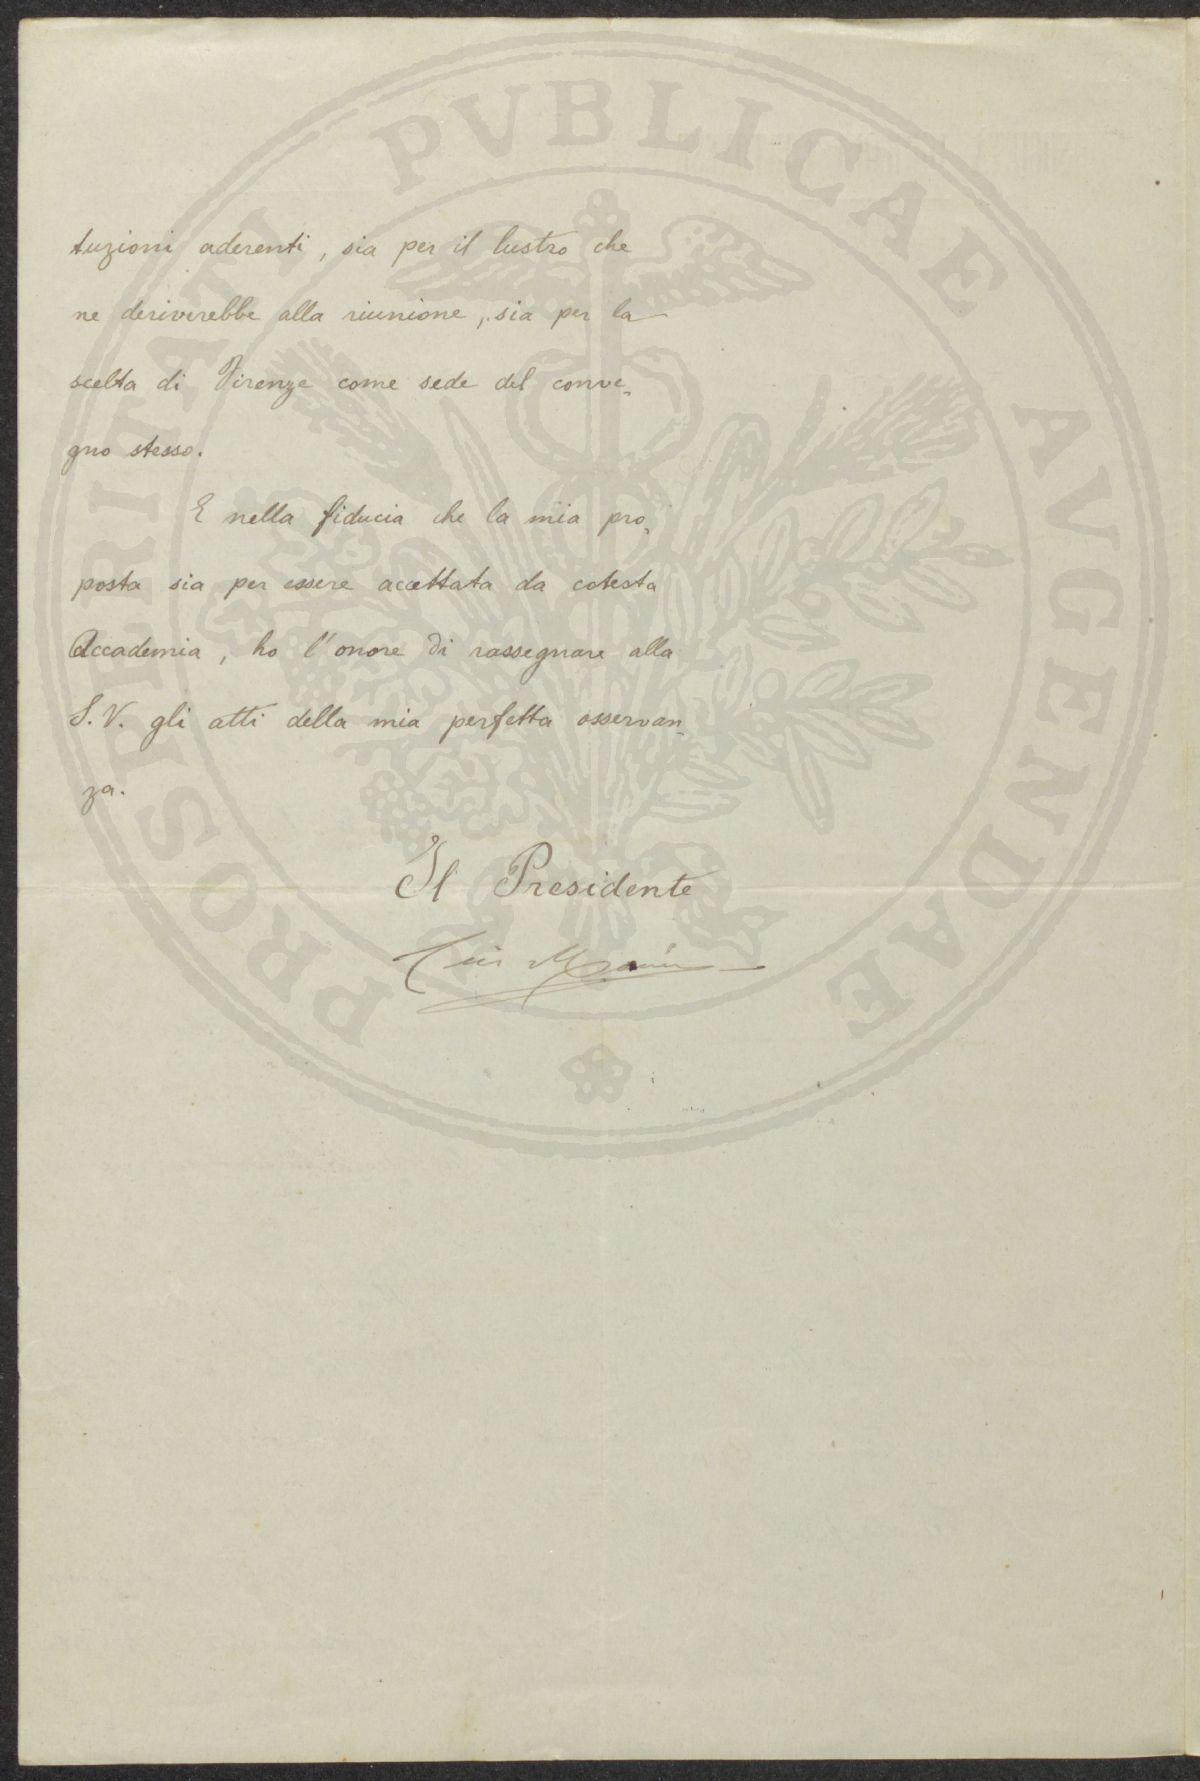 tuzioni aderenti, sia per il lustro che
ne deriverebbe alla riunione, sia per la
scelta di Firenze come sede del conve-
gno stesso.
E nella fiducia che la mia pro-
posta sia per essere accettata da cotesta
Accademia, ho l'onore di rassegnare alla
S.V. gli atti della mia perfetta osservan-
za.
Il Presidente
PROSPERITATI PVBLICAE AVGENDAE